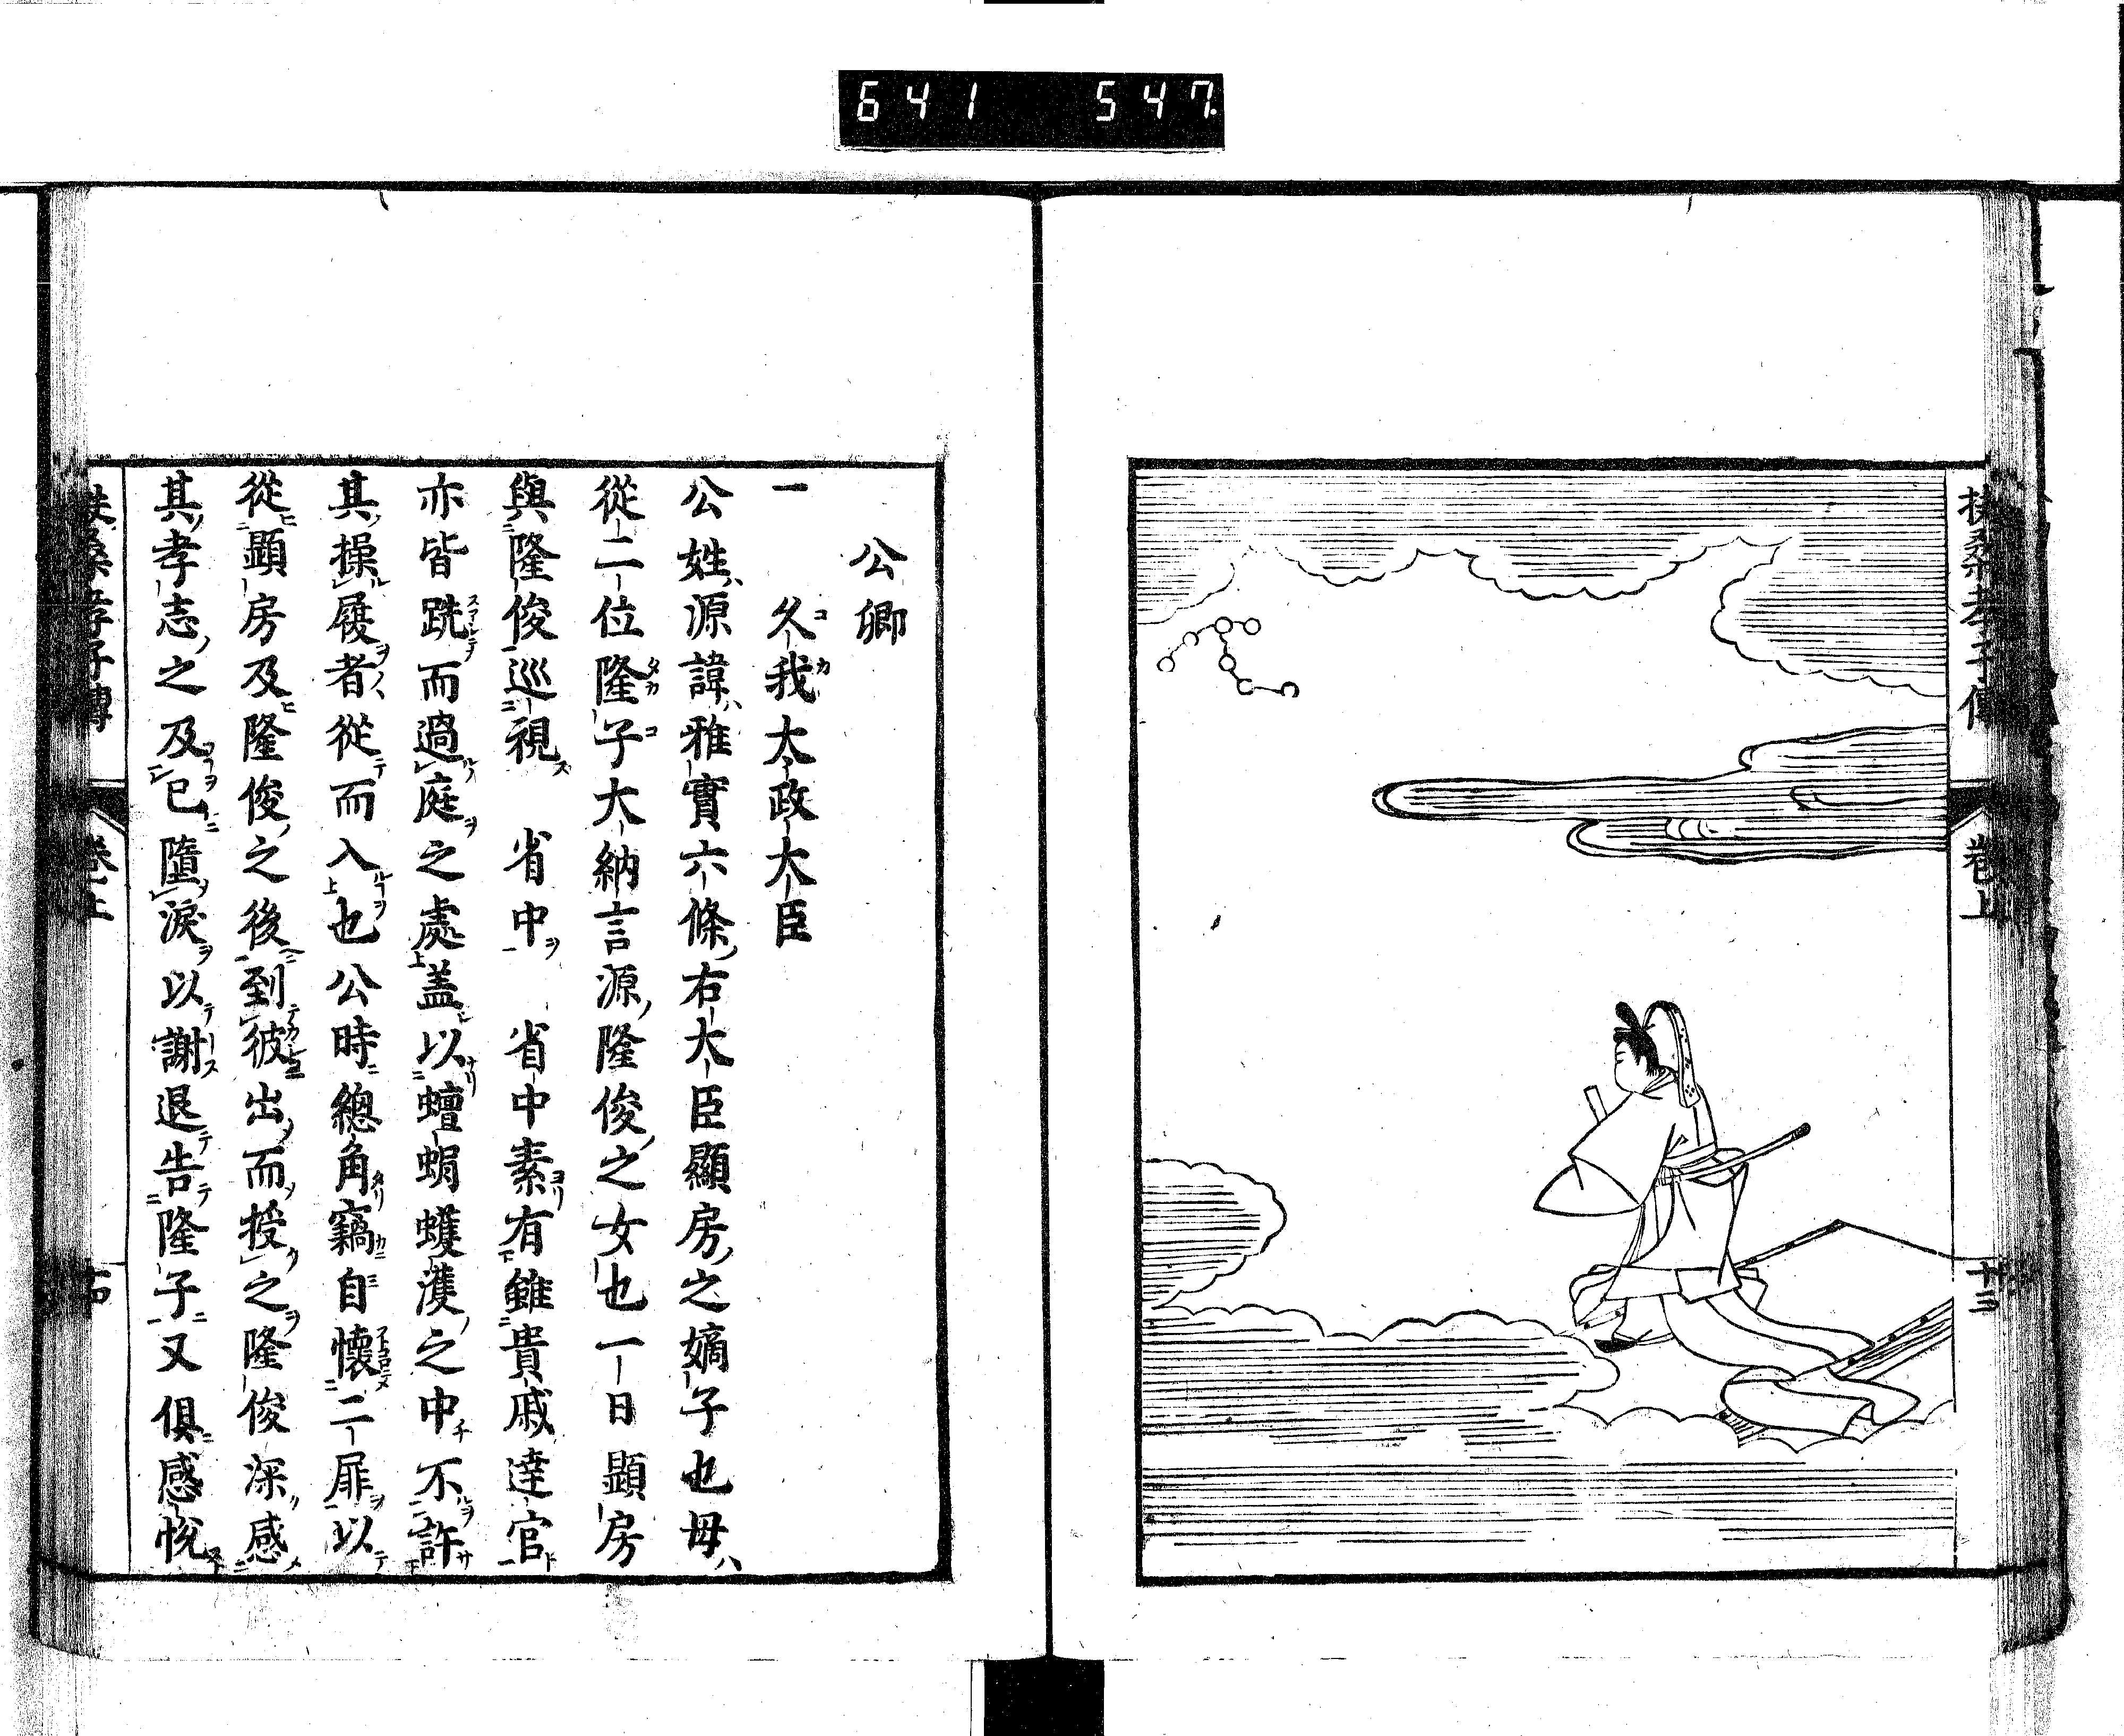 641 547
扶桑孝子傳
卷上
十三
公卿
一 久我太政大臣
公姓源諱雅實六條右大臣顯房之嫡子也母
從二位隆子大納言源隆俊之女也一日顕房
與隆俊巡視 省中 省中素有雖貴戚達官
亦皆跣而過庭之處盖以蟺蜎蠖濩之中不許
其操履者從而入也公時總角竊自懷二屝以
從顕房及隆俊之後到彼出而授之隆俊深感
其孝志之及已墮淚以謝退告隆子又俱感悅
扶桑孝子傳
卷上
十四